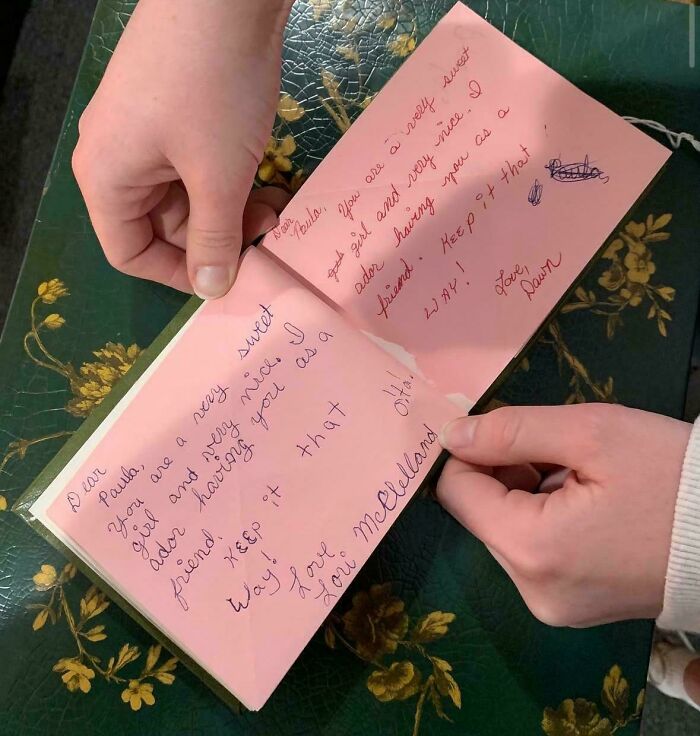 Dear
Paula,
You are a very sweet
girl and very nice. I
ador having you as a
friend. KEEP it that
Way!
Love
Lori McClelland
Dear
Paula, You are a very sweet
girl and very nice. I
ador having you as a
friend. KEEP it that
WAY!
Love,
Dawn